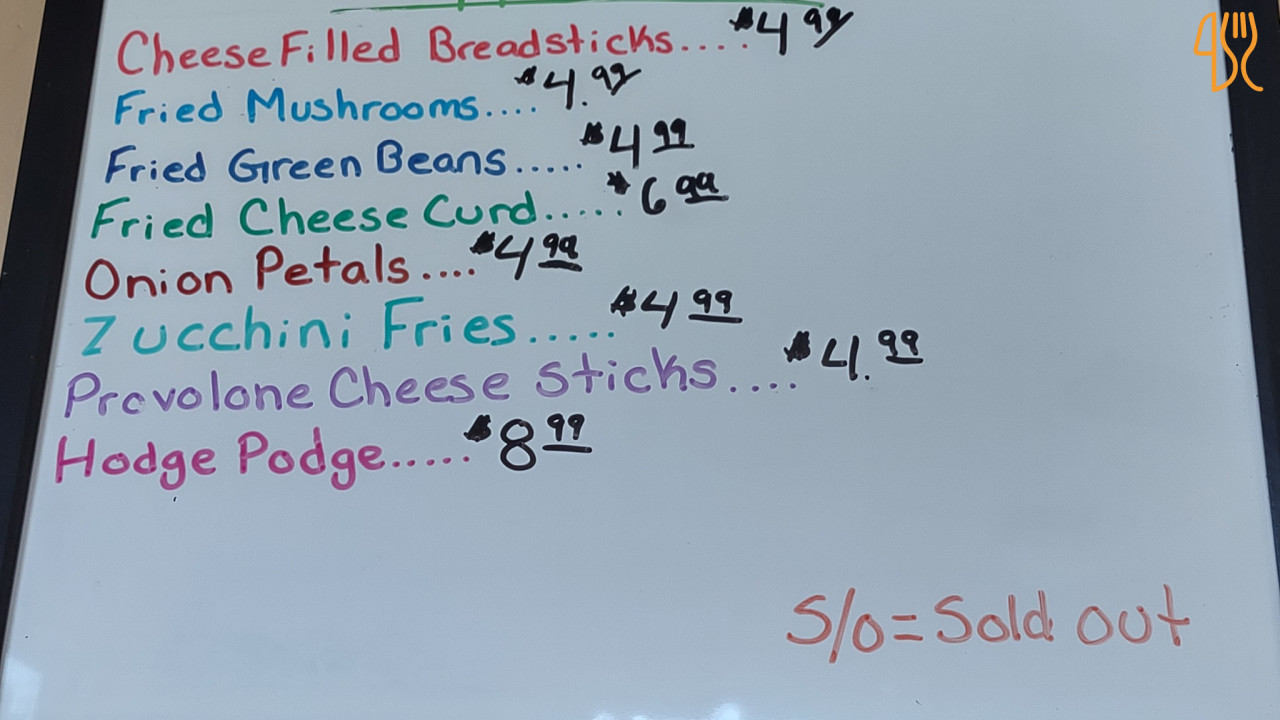 Cheese Filled Breadsticks....$4 99
Fried Mushrooms....$4.99
Fried Green Beans.....$4 99
Fried Cheese Curd.....$6 99
Onion Petals....$4 99
Zucchini Fries.....$4 99
Provolone Cheese Sticks....$4.99
Hodge Podge.....$8 99
S/o=Sold out